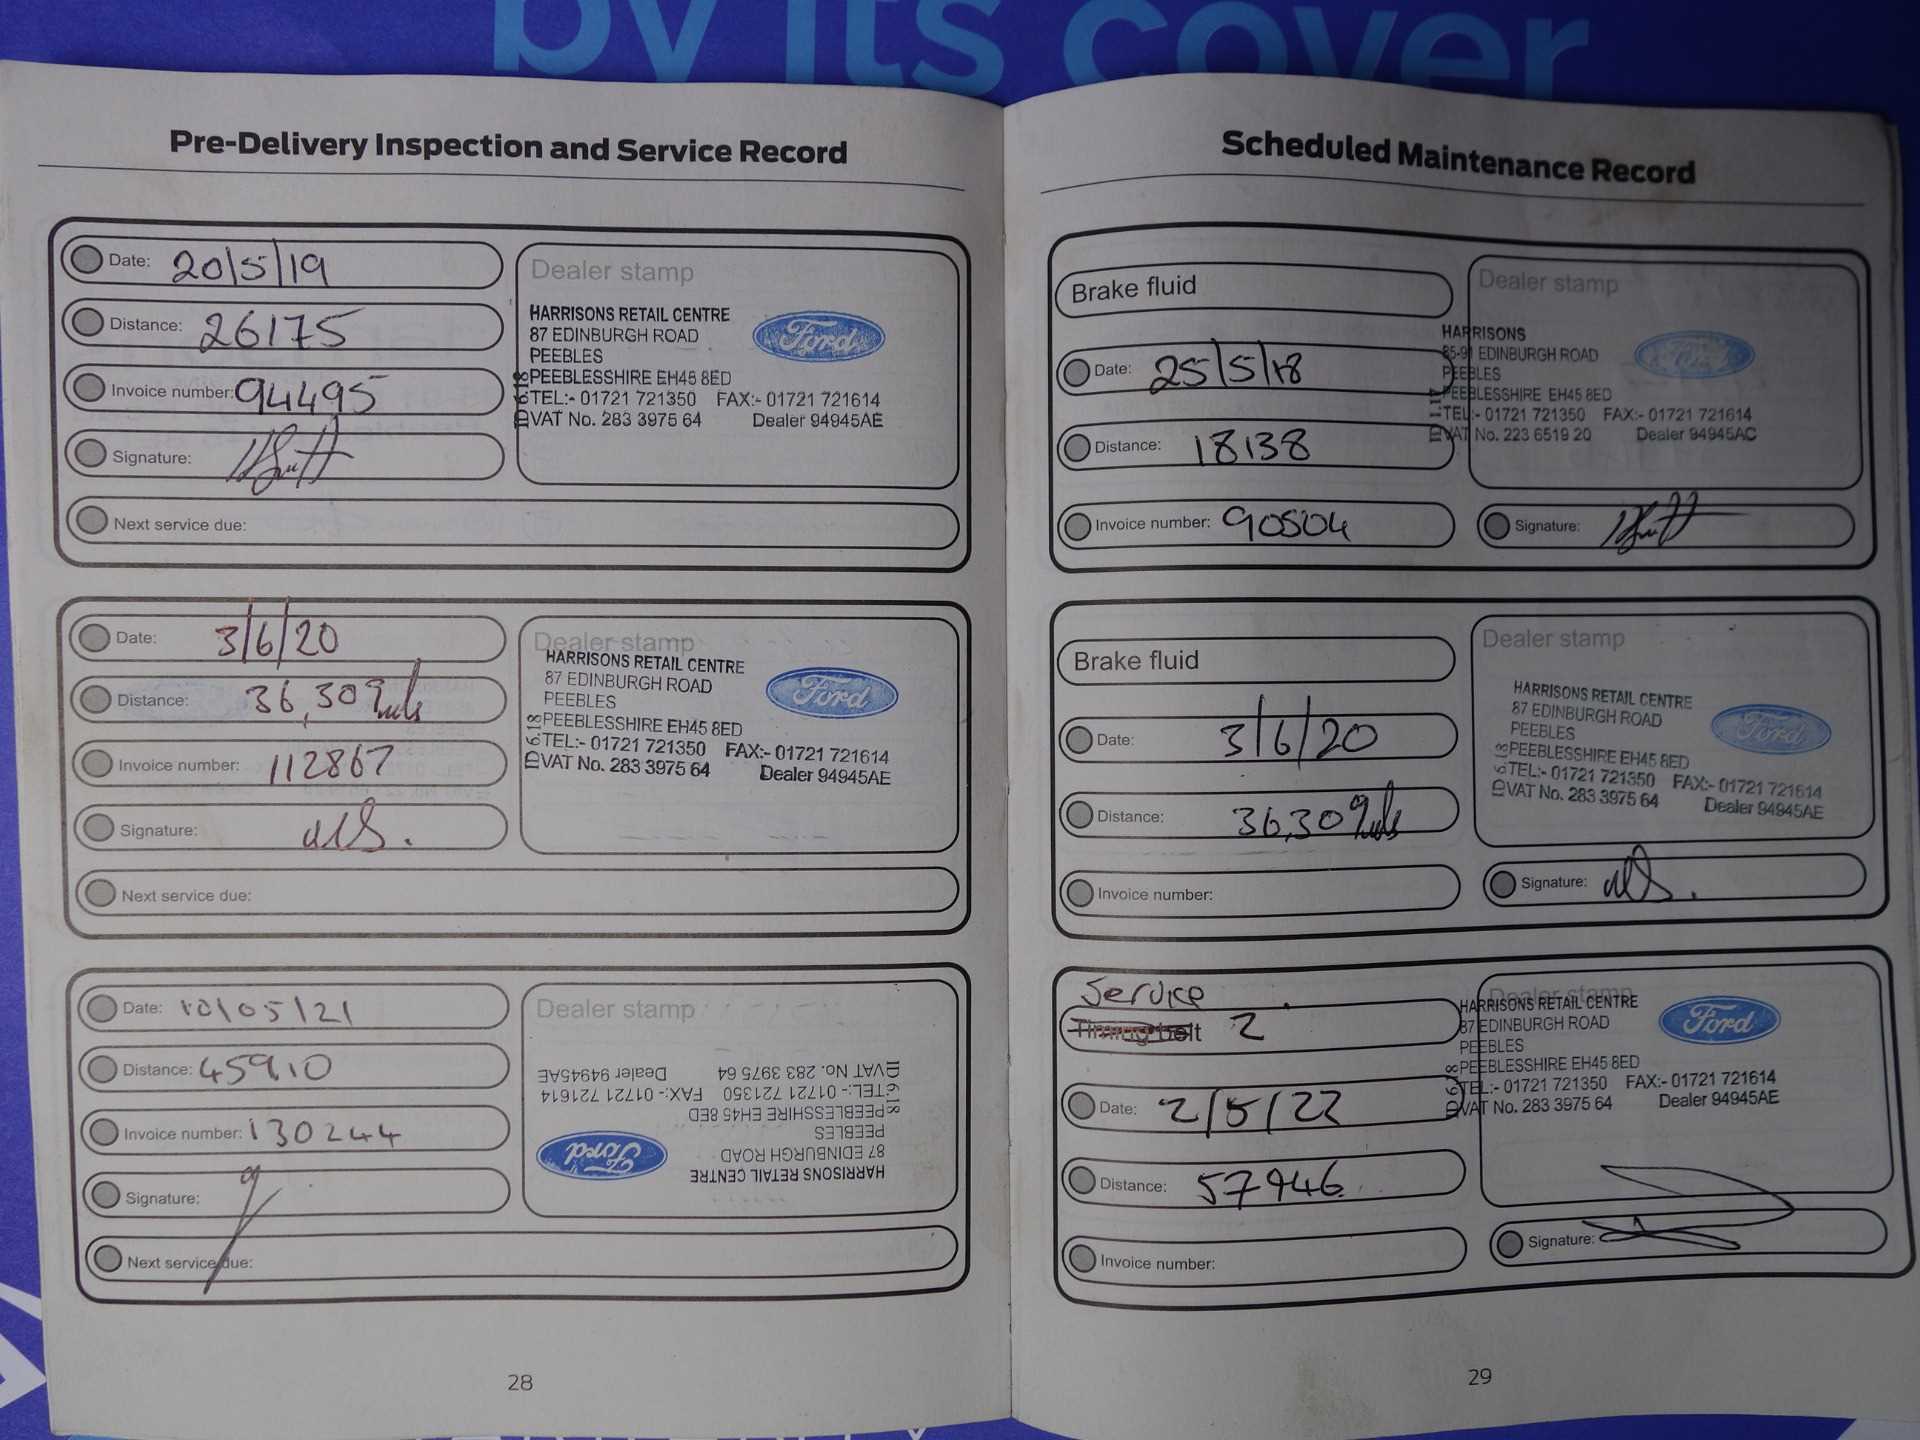 by its cover
Pre-Delivery Inspection and Service Record
Date: 20/5/19
Distance: 26175
Invoice number: 94495
Signature:
Next service due:
Dealer stamp
HARRISONS RETAIL CENTRE
87 EDINBURGH ROAD
PEEBLES
PEEBLESSHIRE EH45 8ED
TEL:- 01721 721350 FAX:- 01721 721614
VAT No. 283 3975 64 Dealer 94945AE
Ford
Date: 3/6/20
Distance: 36,309 mls
Invoice number: 112867
Signature:
Next service due:
Dealer stamp
HARRISONS RETAIL CENTRE
87 EDINBURGH ROAD
PEEBLES
PEEBLESSHIRE EH45 8ED
TEL:- 01721 721350 FAX:- 01721 721614
VAT No. 283 3975 64 Dealer 94945AE
Ford
Date: 10/05/21
Distance: 45910
Invoice number: 130244
Signature:
Next service due:
Dealer stamp
HARRISONS RETAIL CENTRE
87 EDINBURGH ROAD
PEEBLES
PEEBLESSHIRE EH45 8ED
TEL:- 01721 721350 FAX:- 01721 721614
VAT No. 283 3975 64 Dealer 94945AE
Ford
28
Scheduled Maintenance Record
Brake fluid
Date: 25/5/18
Distance: 18138
Invoice number: 90504
Dealer stamp
HARRISONS
85-91 EDINBURGH ROAD
PEEBLES
PEEBLESSHIRE EH45 8ED
TEL:- 01721 721350 FAX:- 01721 721614
VAT No. 223 6519 20 Dealer 94945AC
Ford
Signature:
Brake fluid
Date: 3/6/20
Distance: 36,309 mls
Invoice number:
Dealer stamp
HARRISONS RETAIL CENTRE
87 EDINBURGH ROAD
PEEBLES
PEEBLESSHIRE EH45 8ED
TEL:- 01721 721350 FAX:- 01721 721614
VAT No. 283 3975 64 Dealer 94945AE
Ford
Signature:
Service
Timing belt 2
Date: 2/5/22
Distance: 57946
Invoice number:
Dealer stamp
HARRISONS RETAIL CENTRE
87 EDINBURGH ROAD
PEEBLES
PEEBLESSHIRE EH45 8ED
TEL:- 01721 721350 FAX:- 01721 721614
VAT No. 283 3975 64 Dealer 94945AE
Ford
Signature:
29